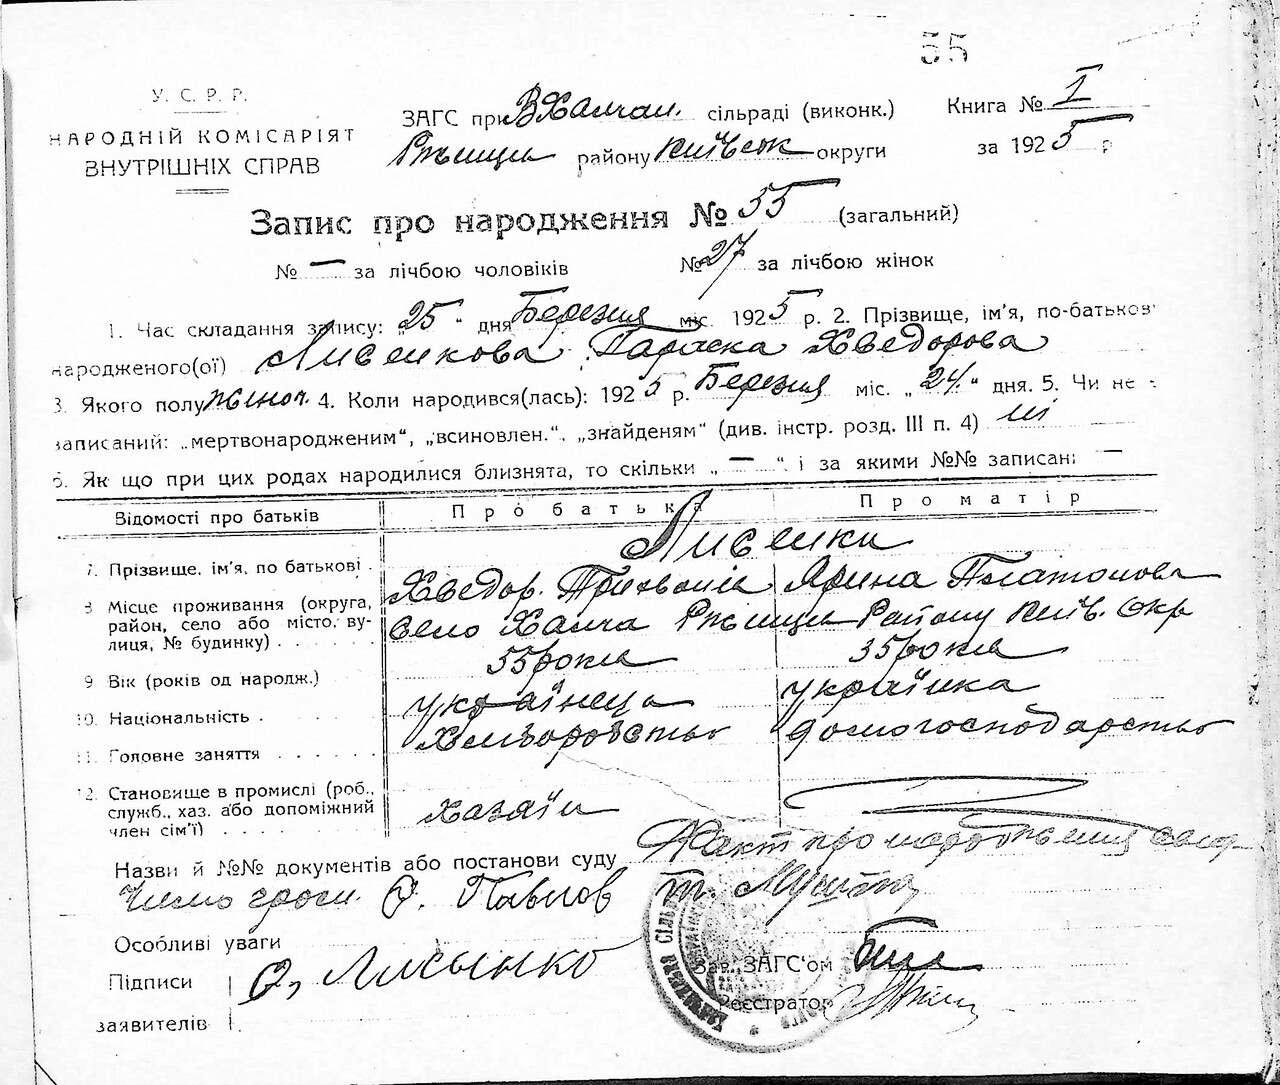 55
У. С. Р. Р.
НАРОДНІЙ КОМІСАРІЯТ
ВНУТРІШНІХ СПРАВ
ЗАГС при сільраді (виконк.)
району Київськ округи
Книга № I
за 1925 р
Запис про народження № 55 (загальний)
№ — за лічбою чоловіків № 27 за лічбою жінок
1. Час складання запису: „25" дня Березня міс. 1925 р. 2. Прізвище, ім'я, по-батьков
народженого(ої) Лисенкова Параска Хведорова
3. Якого полу жіноч. 4. Коли народився(лась): 1925 р. Березня міс. „24." дня. 5. Чи не
записаний: „мертвонародженим", „всиновлен.", „знайденям" (див. інстр. розд. III п. 4) ні
6. Як що при цих родах народилися близнята, то скільки „—" і за якими №№ записані —
Відомості про батьків
Про батька
Про матір
7. Прізвище, ім'я, по батькові .
Лисенки
Хведор
Ярина Платонова
8 Місце проживання (округа,
район, село або місто, ву-
лиця, № будинку) . . . . .
село Халча Району Київ. Окр
9 Вік (років од народж.)
55 роки
35 роки
10. Національність .
українець
українка
11. Головне заняття . . . . . .
Хліборобство
домогосподарство
12. Становище в промислі (роб.,
служб., хаз. або допоміжний
член сім'ї) . . . .
хазяїн
Назви й №№ документів або постанови суду
Факт про народження
О. Павлов
Особливі уваги
Підписи
заявителів
О, Лисынко
Зав. ЗАГС'ом
Реєстратор